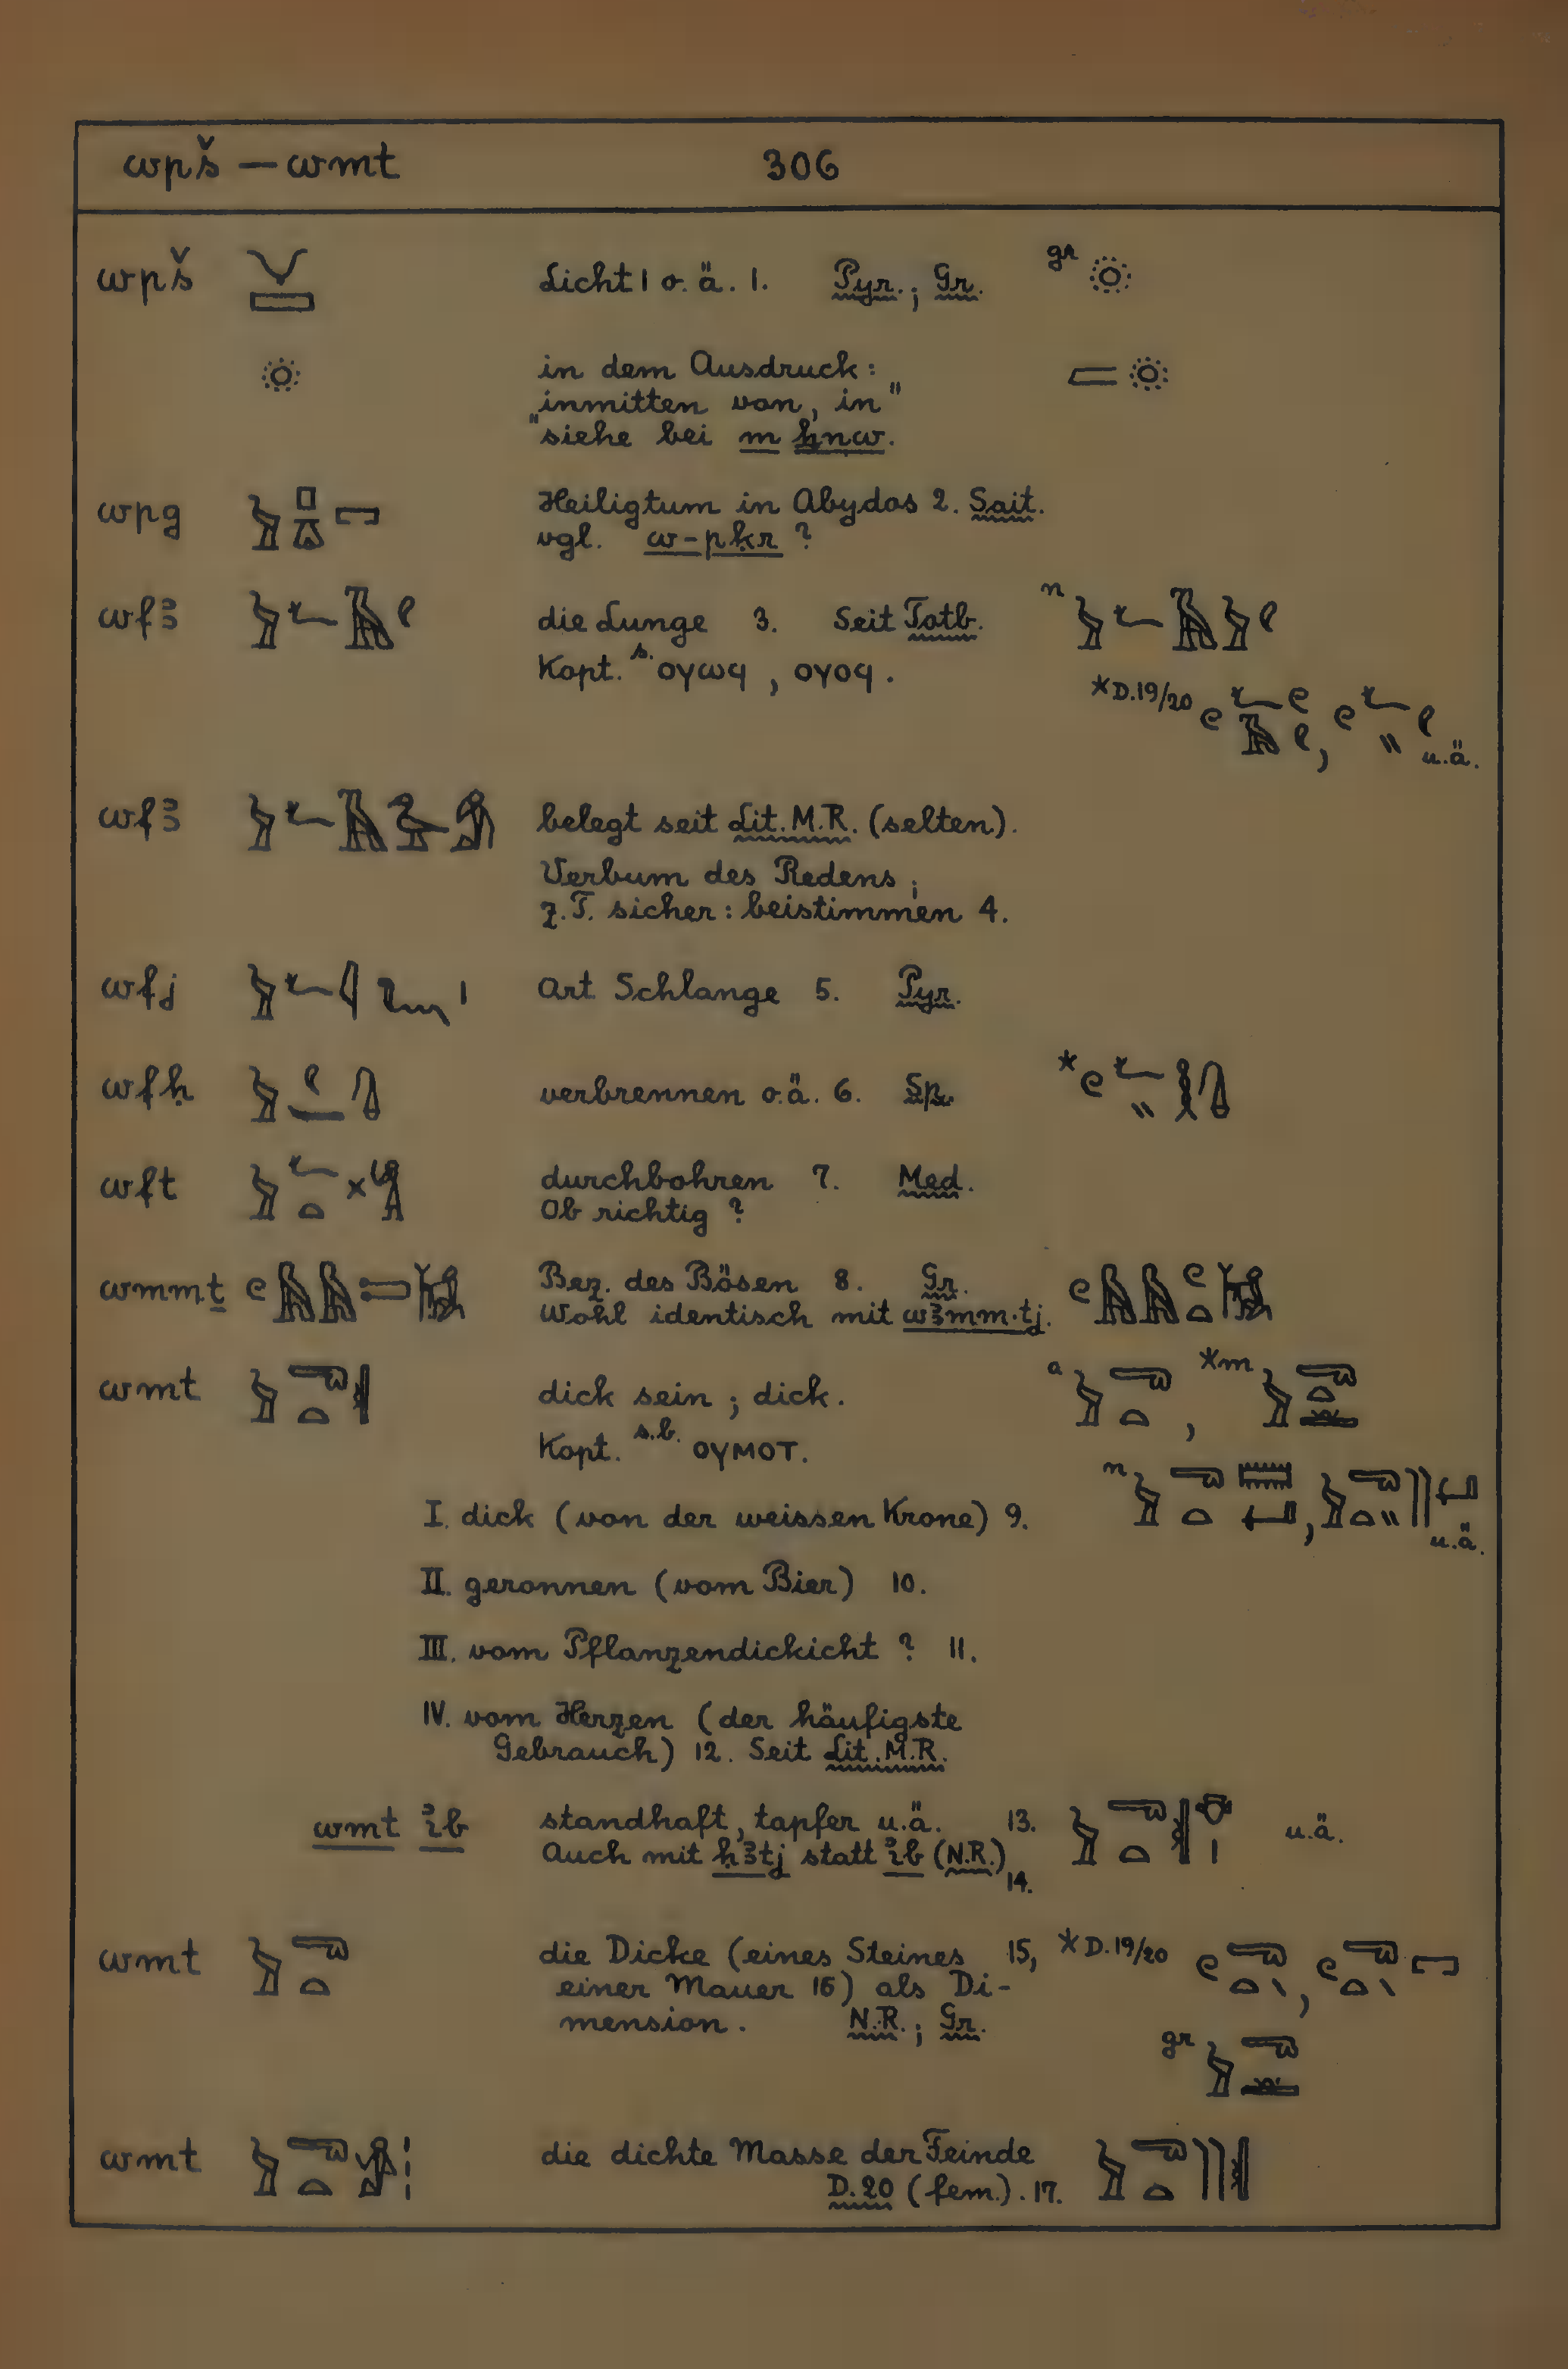 wpš – wmt 306
wpš Licht 1 o. ä. 1. Pyr.; Gr. gr
in dem Ausdruck:
„inmitten von, in"
siehe bei m ẖnw.
wpg Heiligtum in Abydos 2. Sait.
vgl. w-pḳr ?
wfꜣ die Lunge 3. Seit Totb. n
Kopt. s. ⲟⲩⲱϥ , ⲟⲩⲟϥ .
*D.19/20 , u.ä.
wfꜣ belegt seit Lit. M.R. (selten).
Verbum des Redens ;
z.T. sicher : beistimmen 4.
wfj Art Schlange 5. Pyr.
wfḥ verbrennen o.ä. 6. Sp. *
wft durchbohren 7. Med.
Ob richtig ?
wmmṯ Bez. des Bösen 8. Gr.
Wohl identisch mit wꜣmm.tj.
wmt dick sein ; dick. a , *m
Kopt. s.b. ⲟⲩⲙⲟⲧ.
n , u.ä.
I. dick (von der weissen Krone) 9.
II. geronnen (vom Bier) 10.
III. vom Pflanzendickicht ? 11.
IV. vom Herzen (der häufigste
Gebrauch) 12. Seit Lit. M.R.
wmt ꞽb standhaft, tapfer u.ä. 13. u.ä.
Auch mit ḥꜣtj statt ꞽb (N.R.)
14.
wmt die Dicke (eines Steines 15, *D.19/20 ,
einer Mauer 16) als Di-
mension. N.R.; Gr.
gr
wmt die dichte Masse der Feinde
D.20 (fem.). 17.